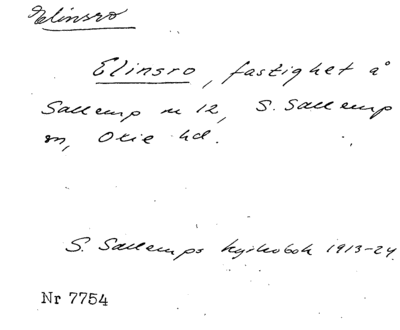 Elinsro
Elinsro, fastighet å
Sallerup nr 12, S. Sallerup
sn, Oxie hd.
S. Sallerups kyrkobok 1913-24
Nr 7754